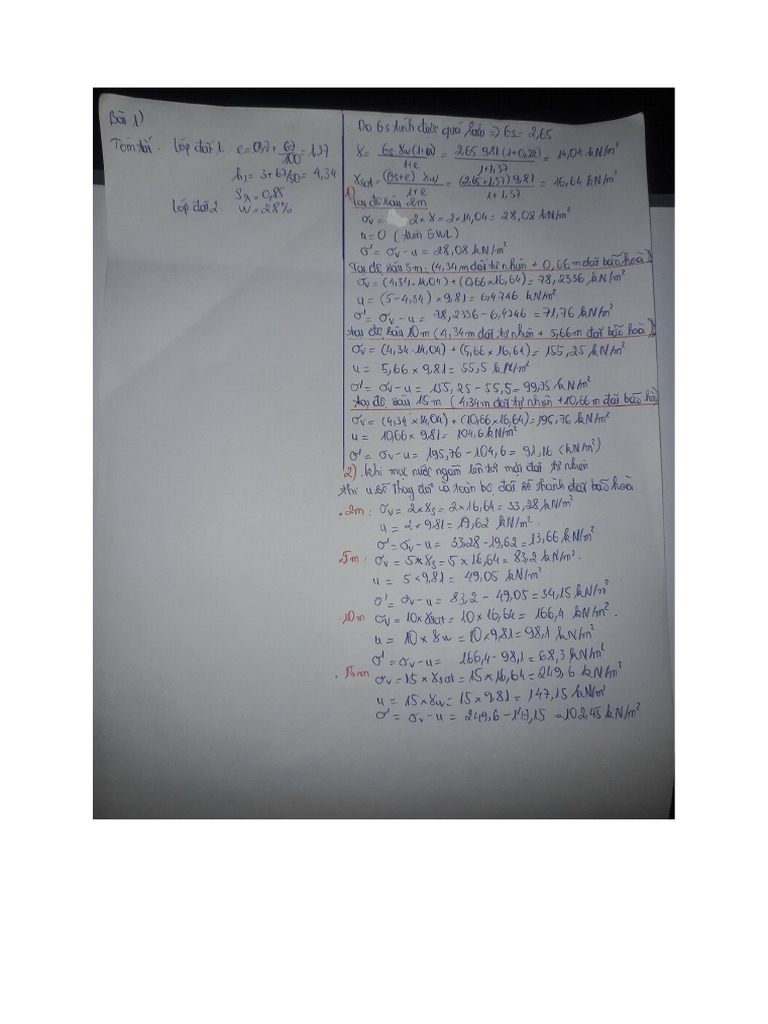 Bài 1)
Tóm tắt. Lớp đất 1: e = 0,7 + 67/100 = 1,37
h1 = 3 + 67/50 = 4,34
Sr = 0,85
Lớp đất 2: w = 28%
Do Gs tính được quá lớn => Gs = 2,65
γ = Gs.γw(1+w)/1+e = 2,65.9,81(1+0,28)/1+1,37 = 14,04 kN/m³
γsat = (Gs+e) γw/1+e = (2,65+1,37) 9,81/1+1,37 = 16,64 kN/m³
1)
Tại độ sâu 2m
σv = 2×γ = 2×14,04 = 28,08 kN/m²
u = 0 (trên GWL)
σ' = σv - u = 28,08 kN/m²
Tại độ sâu 5m: (4,34m đất tự nhiên + 0,66m đất bão hoà)
σv = (4,34×14,04) + (0,66×16,64) = 78,2336 kN/m²
u = (5-4,34) ×9,81 = 6,4746 kN/m²
σ' = σv - u = 78,2336 - 6,4746 = 71,76 kN/m²
tại độ sâu 10m (4,34m đất tự nhiên + 5,66m đất bão hoà)
σv = (4,34.14,04) + (5,66×16,64) = 155,25 kN/m²
u = 5,66 × 9,81 = 55,5 kN/m²
σ' = σv - u = 155,25 - 55,5 = 99,75 kN/m²
tại độ sâu 15m (4,34m đất tự nhiên + 10,66m đất bão hoà
σv = (4,34×14,04) + (10,66×16,64) = 195,76 kN/m²
u = 10,66 × 9,81 = 104,6 kN/m²
σ' = σv - u = 195,76 - 104,6 = 91,16 (kN/m²)
2). khi mực nước ngầm lên tới mặt đất tự nhiên
thì u sẽ thay đổi và toàn bộ đất sẽ thành đất bão hoà
. 2m: σv = 2×γs = 2×16,64 = 33,28 kN/m²
u = 2×9,81 = 19,62 kN/m².
σ' = σv - u = 33,28 - 19,62 = 13,66 kN/m²
5m: σv = 5×γs = 5×16,64 = 83,2 kN/m².
u = 5×9,81 = 49,05 kN/m²
σ' = σv - u = 83,2 - 49,05 = 34,15 kN/m²
.10m σv = 10×γsat = 10×16,64 = 166,4 kN/m².
u = 10×γw = 10×9,81 = 98,1 kN/m²
σ' = σv - u = 166,4 - 98,1 = 68,3 kN/m²
. 15m σv = 15×γsat = 15×16,64 = 249,6 kN/m²
u = 15×γw = 15×9,81 = 147,15 kN/m²
σ' = σv - u = 249,6 - 147,15 = 102,45 kN/m²